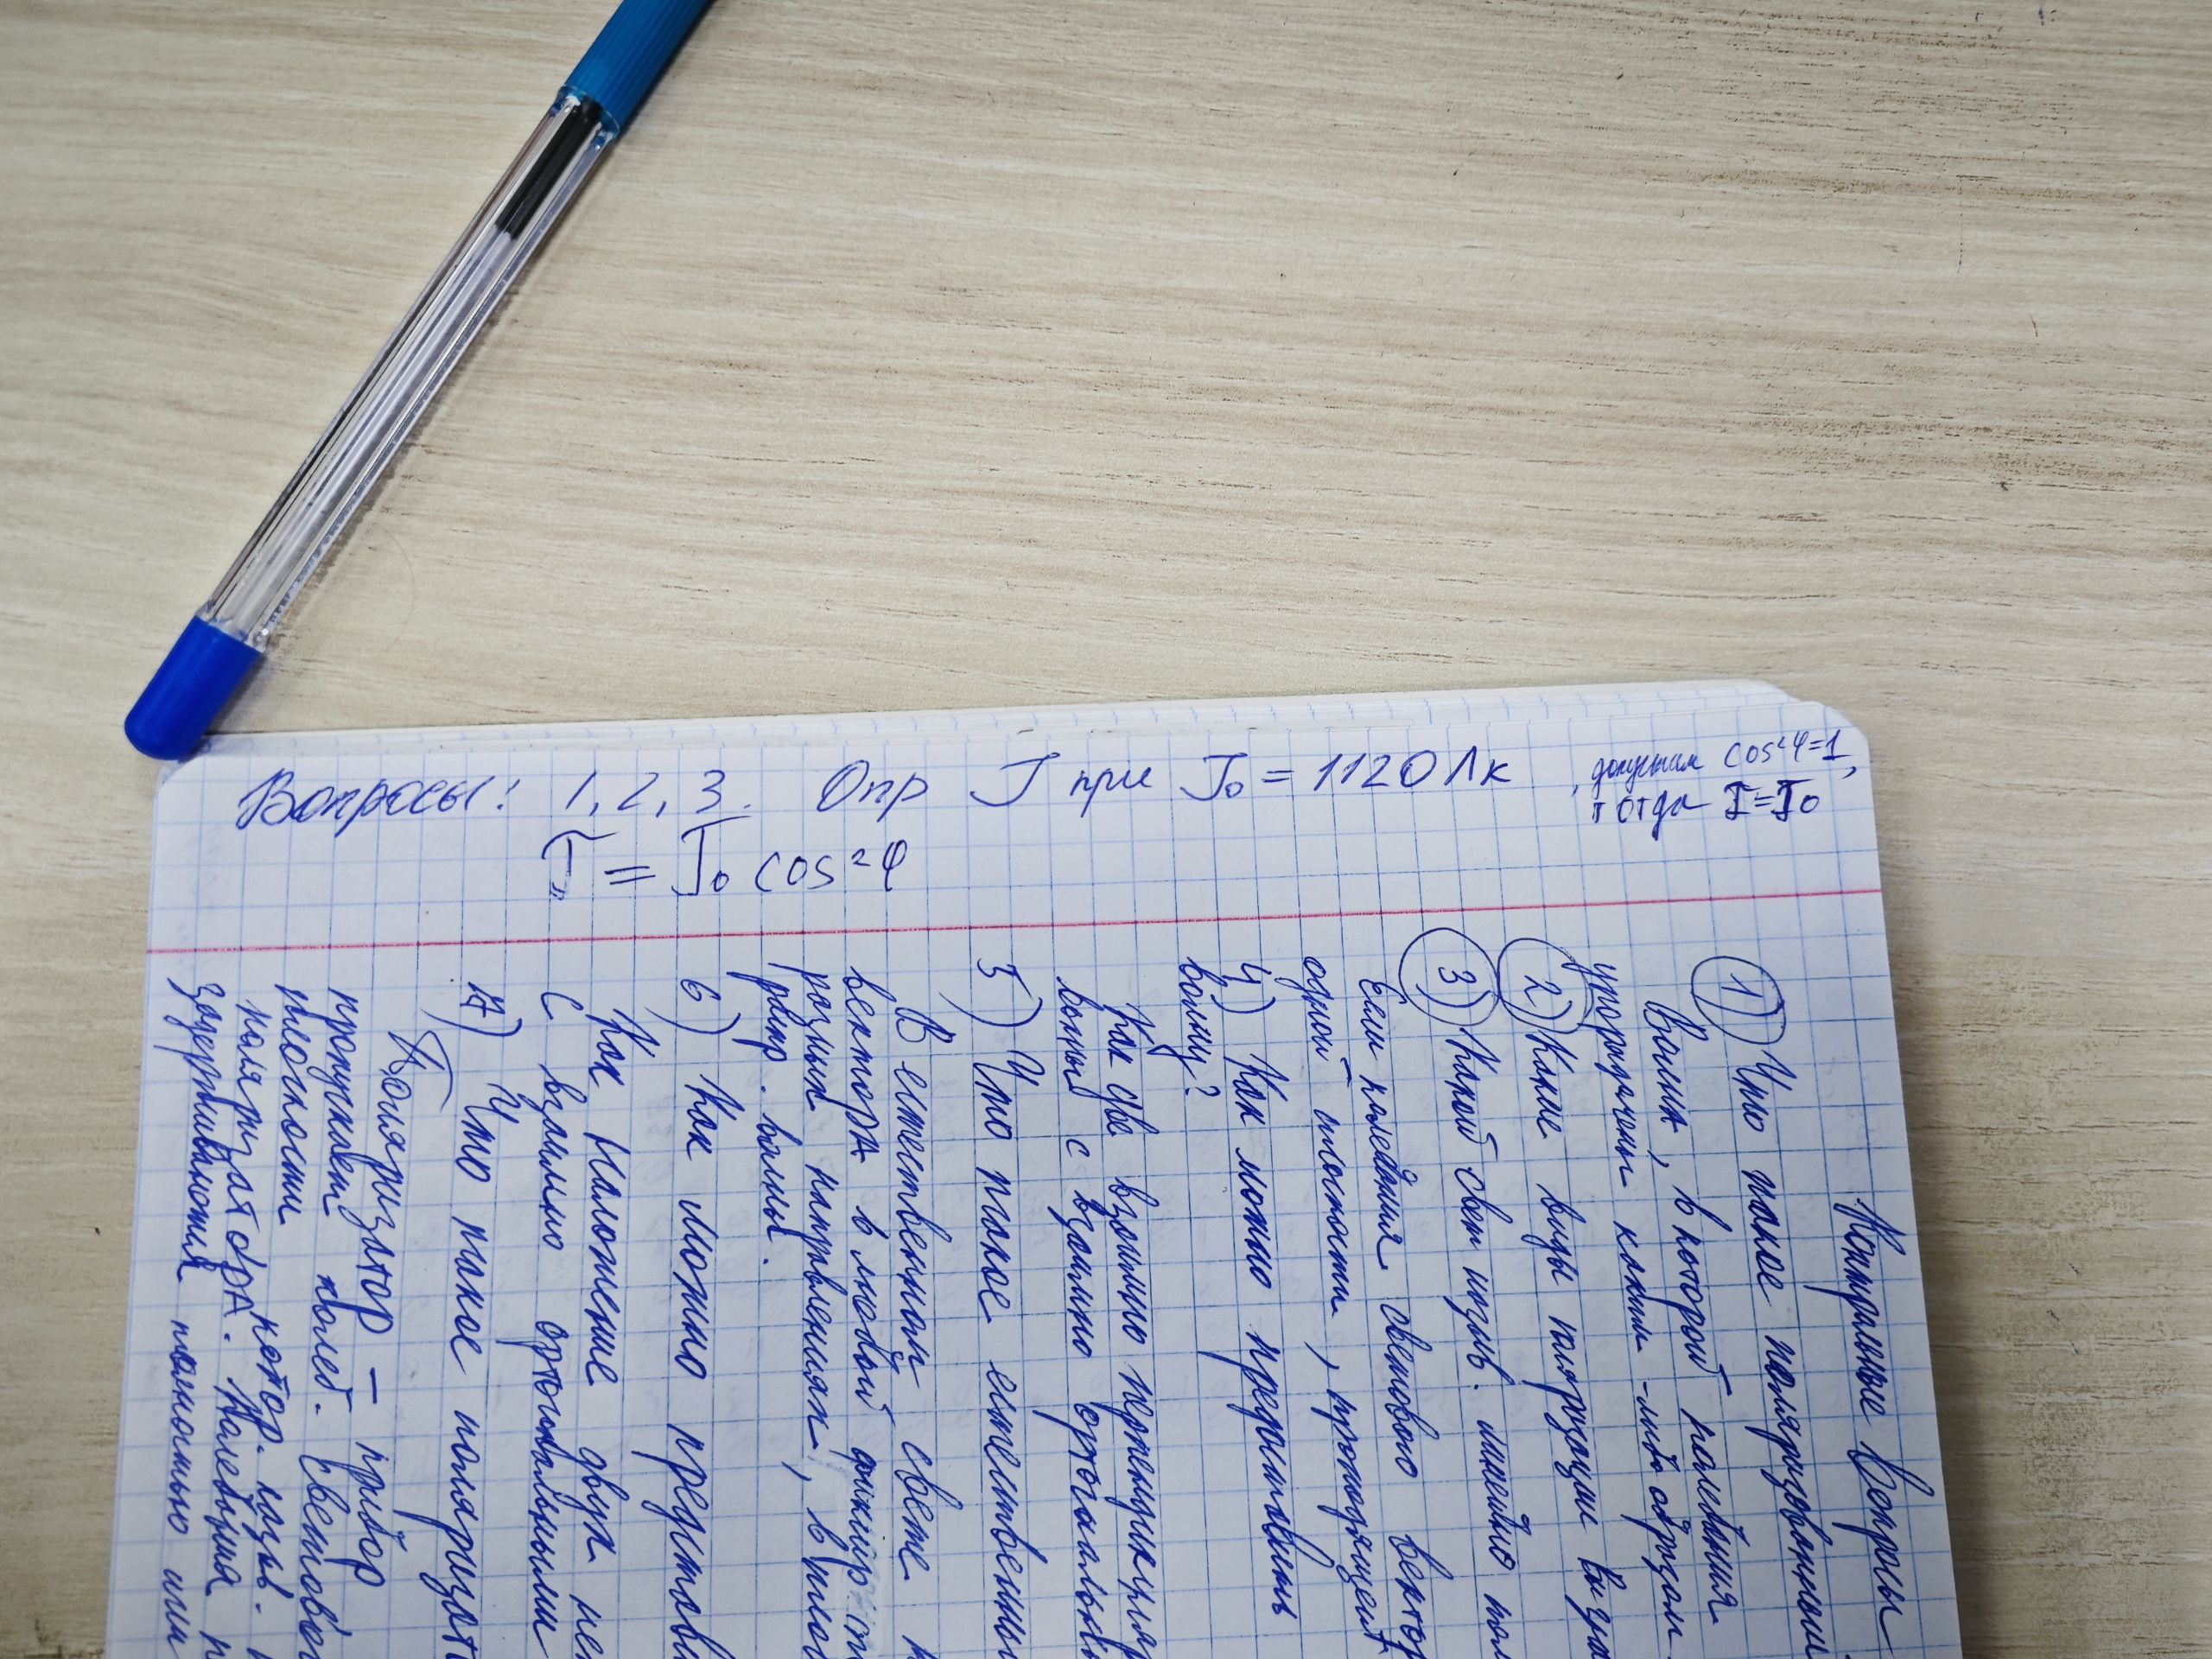 Вопросы: 1, 2, 3. Опр J при J₀ = 1120 Лк , допустим cos²φ=1,
тогда I=I₀
J = J₀ cos²φ
Контрольные вопросы
1) Что такое поляризованный
Волна, в которой колебания
упорядочены каким-либо образом
2) Какие виды поляризации Вы
3) Какой свет назыв. линейно пол
Если колебания светового вектор
одной плоскости, проходящей
4) Как можно представить
волну?
Как две взаимно перпендикуляр
волны с взаимно ортогональны
5) Что такое естественны
В естественном свете
вектора в любой
разных направлениях, в плос
распр. волны.
6) Как можно представи
Как наложение двух не
с взаимно ортогональными
7) Что такое поляризат
Поляризатор – прибор
пропускает колеб. светового
плоскости котор. назыв.
поляризатора. Колебания п
задерживаются полностью или